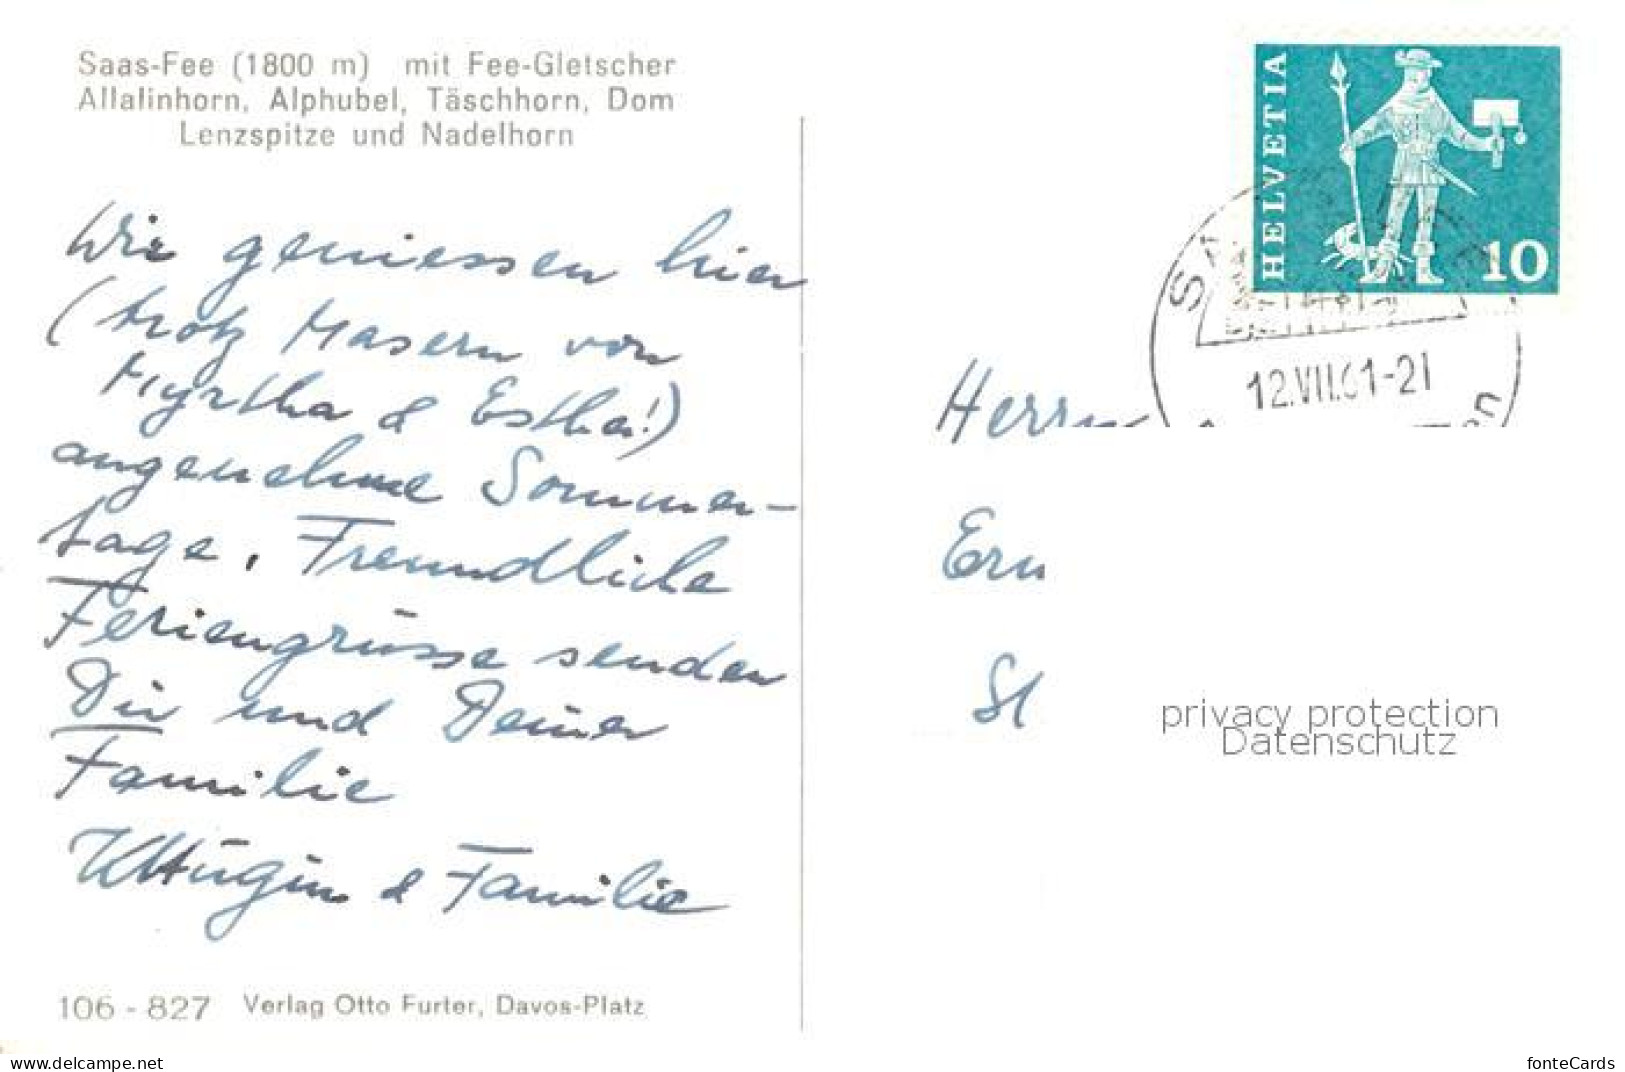 Saas-Fee (1800 m) mit Fee-Gletscher
Allalinhorn, Alphubel, Täschhorn, Dom
Lenzspitze und Nadelhorn
Wir geniessen hier
(trotz Masern von
Myrtha & Esther!)
angenehme Sommer-
tage. Freundliche
Feriengrüsse senden
Dir und Deiner
Familie
& Familie
106 - 827 Verlag Otto Furter, Davos-Platz
HELVETIA
10
12.VII.61-21
Herrn
Ern
St
privacy protection
Datenschutz
www.delcampe.net
fonteCards